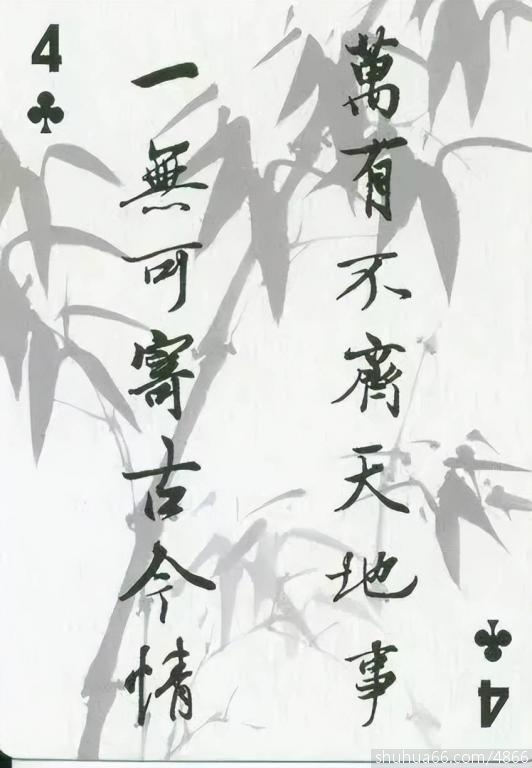 4
萬有不齊天地事
一無可寄古今情
4
shuhua66.com/4866